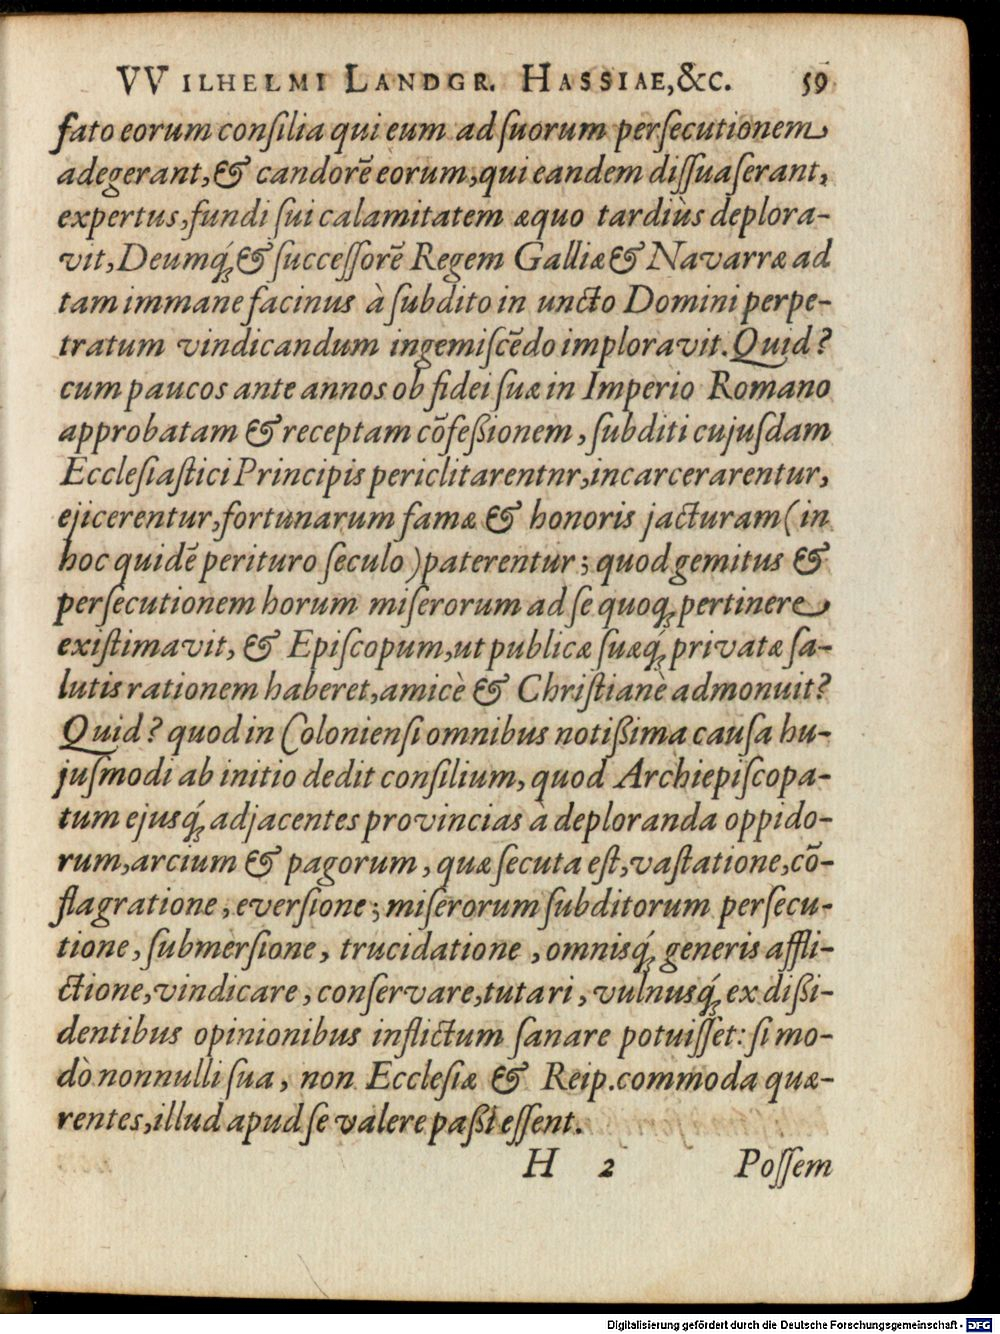 VVILHELMI LANDGR. HASSIAE,&C. 59
fato eorum conſilia qui eum ad ſuorum perſecutionem
adegerant,& candorē eorum,qui eandem diſſuaſerant,
expertus,fundi ſui calamitatem æquo tardiùs deplora-
vit,Deumq́; & ſucceſſorē Regem Galliæ & Navarræ ad
tam immane facinus à ſubdito in uncto Domini perpe-
tratum vindicandum ingemiſcēdo imploravit. Quid?
cum paucos ante annos ob fidei ſuæ in Imperio Romano
approbatam & receptam cōfeßionem, ſubditi cujuſdam
Eccleſiaſtici Principis periclitarentnr,incarcerarentur,
ejicerentur,fortunarum famæ & honoris jacturam (in
hoc quidē perituro ſeculo) paterentur; quod gemitus &
perſecutionem horum miſerorum ad ſe quoq; pertinere
exiſtimavit, & Epiſcopum,ut publicæ ſuæq́; privatæ ſa-
lutis rationem haberet,amicè & Chriſtianè admonuit?
Quid? quod in Colonienſi omnibus notißima cauſa hu-
juſmodi ab initio dedit conſilium, quod Archiepiſcopa-
tum ejusq́; adjacentes provincias à deploranda oppido-
rum,arcium & pagorum, quæ ſecuta eſt,vaſtatione,cō-
flagratione, everſione; miſerorum ſubditorum perſecu-
tione, ſubmerſione, trucidatione, omnisq́; generis affli-
ctione,vindicare, conſervare,tutari, vulnusq́; ex dißi-
dentibus opinionibus inflictum ſanare potuiſſet: ſi mo-
dò nonnulli ſua, non Eccleſiæ & Reip. commoda quæ-
rentes,illud apud ſe valere paßi eſſent.
H 2 Poſſem
Digitalisierung gefördert durch die Deutsche Forschungsgemeinschaft - DFG